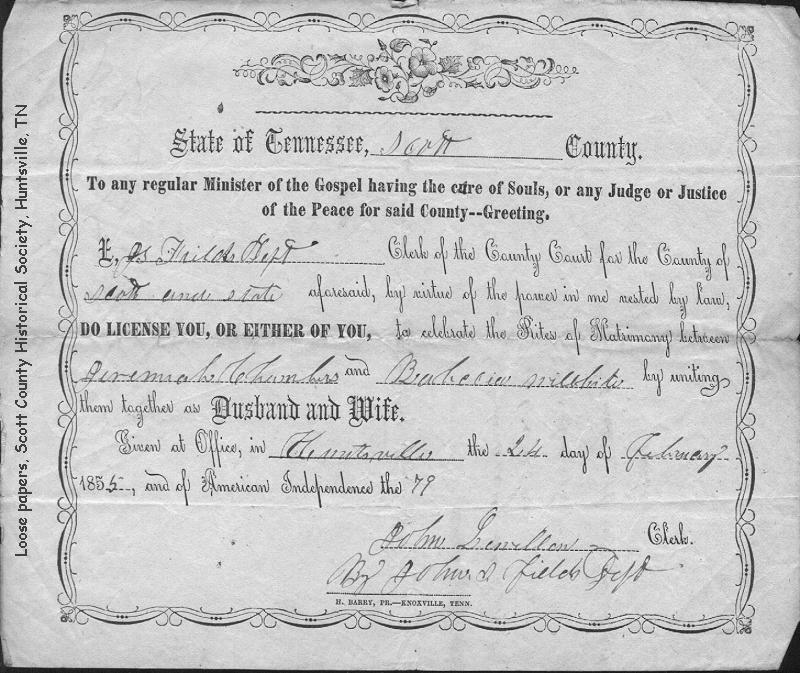 State of Tennessee, Scott County.
To any regular Minister of the Gospel having the care of Souls, or any Judge or Justice
of the Peace for said County--Greeting.
I, Js Fields Dept Clerk of the County Court for the County of
Scott and state aforesaid, by virtue of the power in me vested by law,
DO LICENSE YOU, OR EITHER OF YOU, to celebrate the Rites of Matrimony between
Jeremiah Chambers and by uniting
them together as Husband and Wife.
Given at Office, in Huntsville the 24 day of February
1855, and of American Independence the 79
John Clerk.
By John S Fields Dept
H. BARRY, PR.—KNOXVILLE, TENN.
Loose papers, Scott County Historical Society, Huntsville, TN